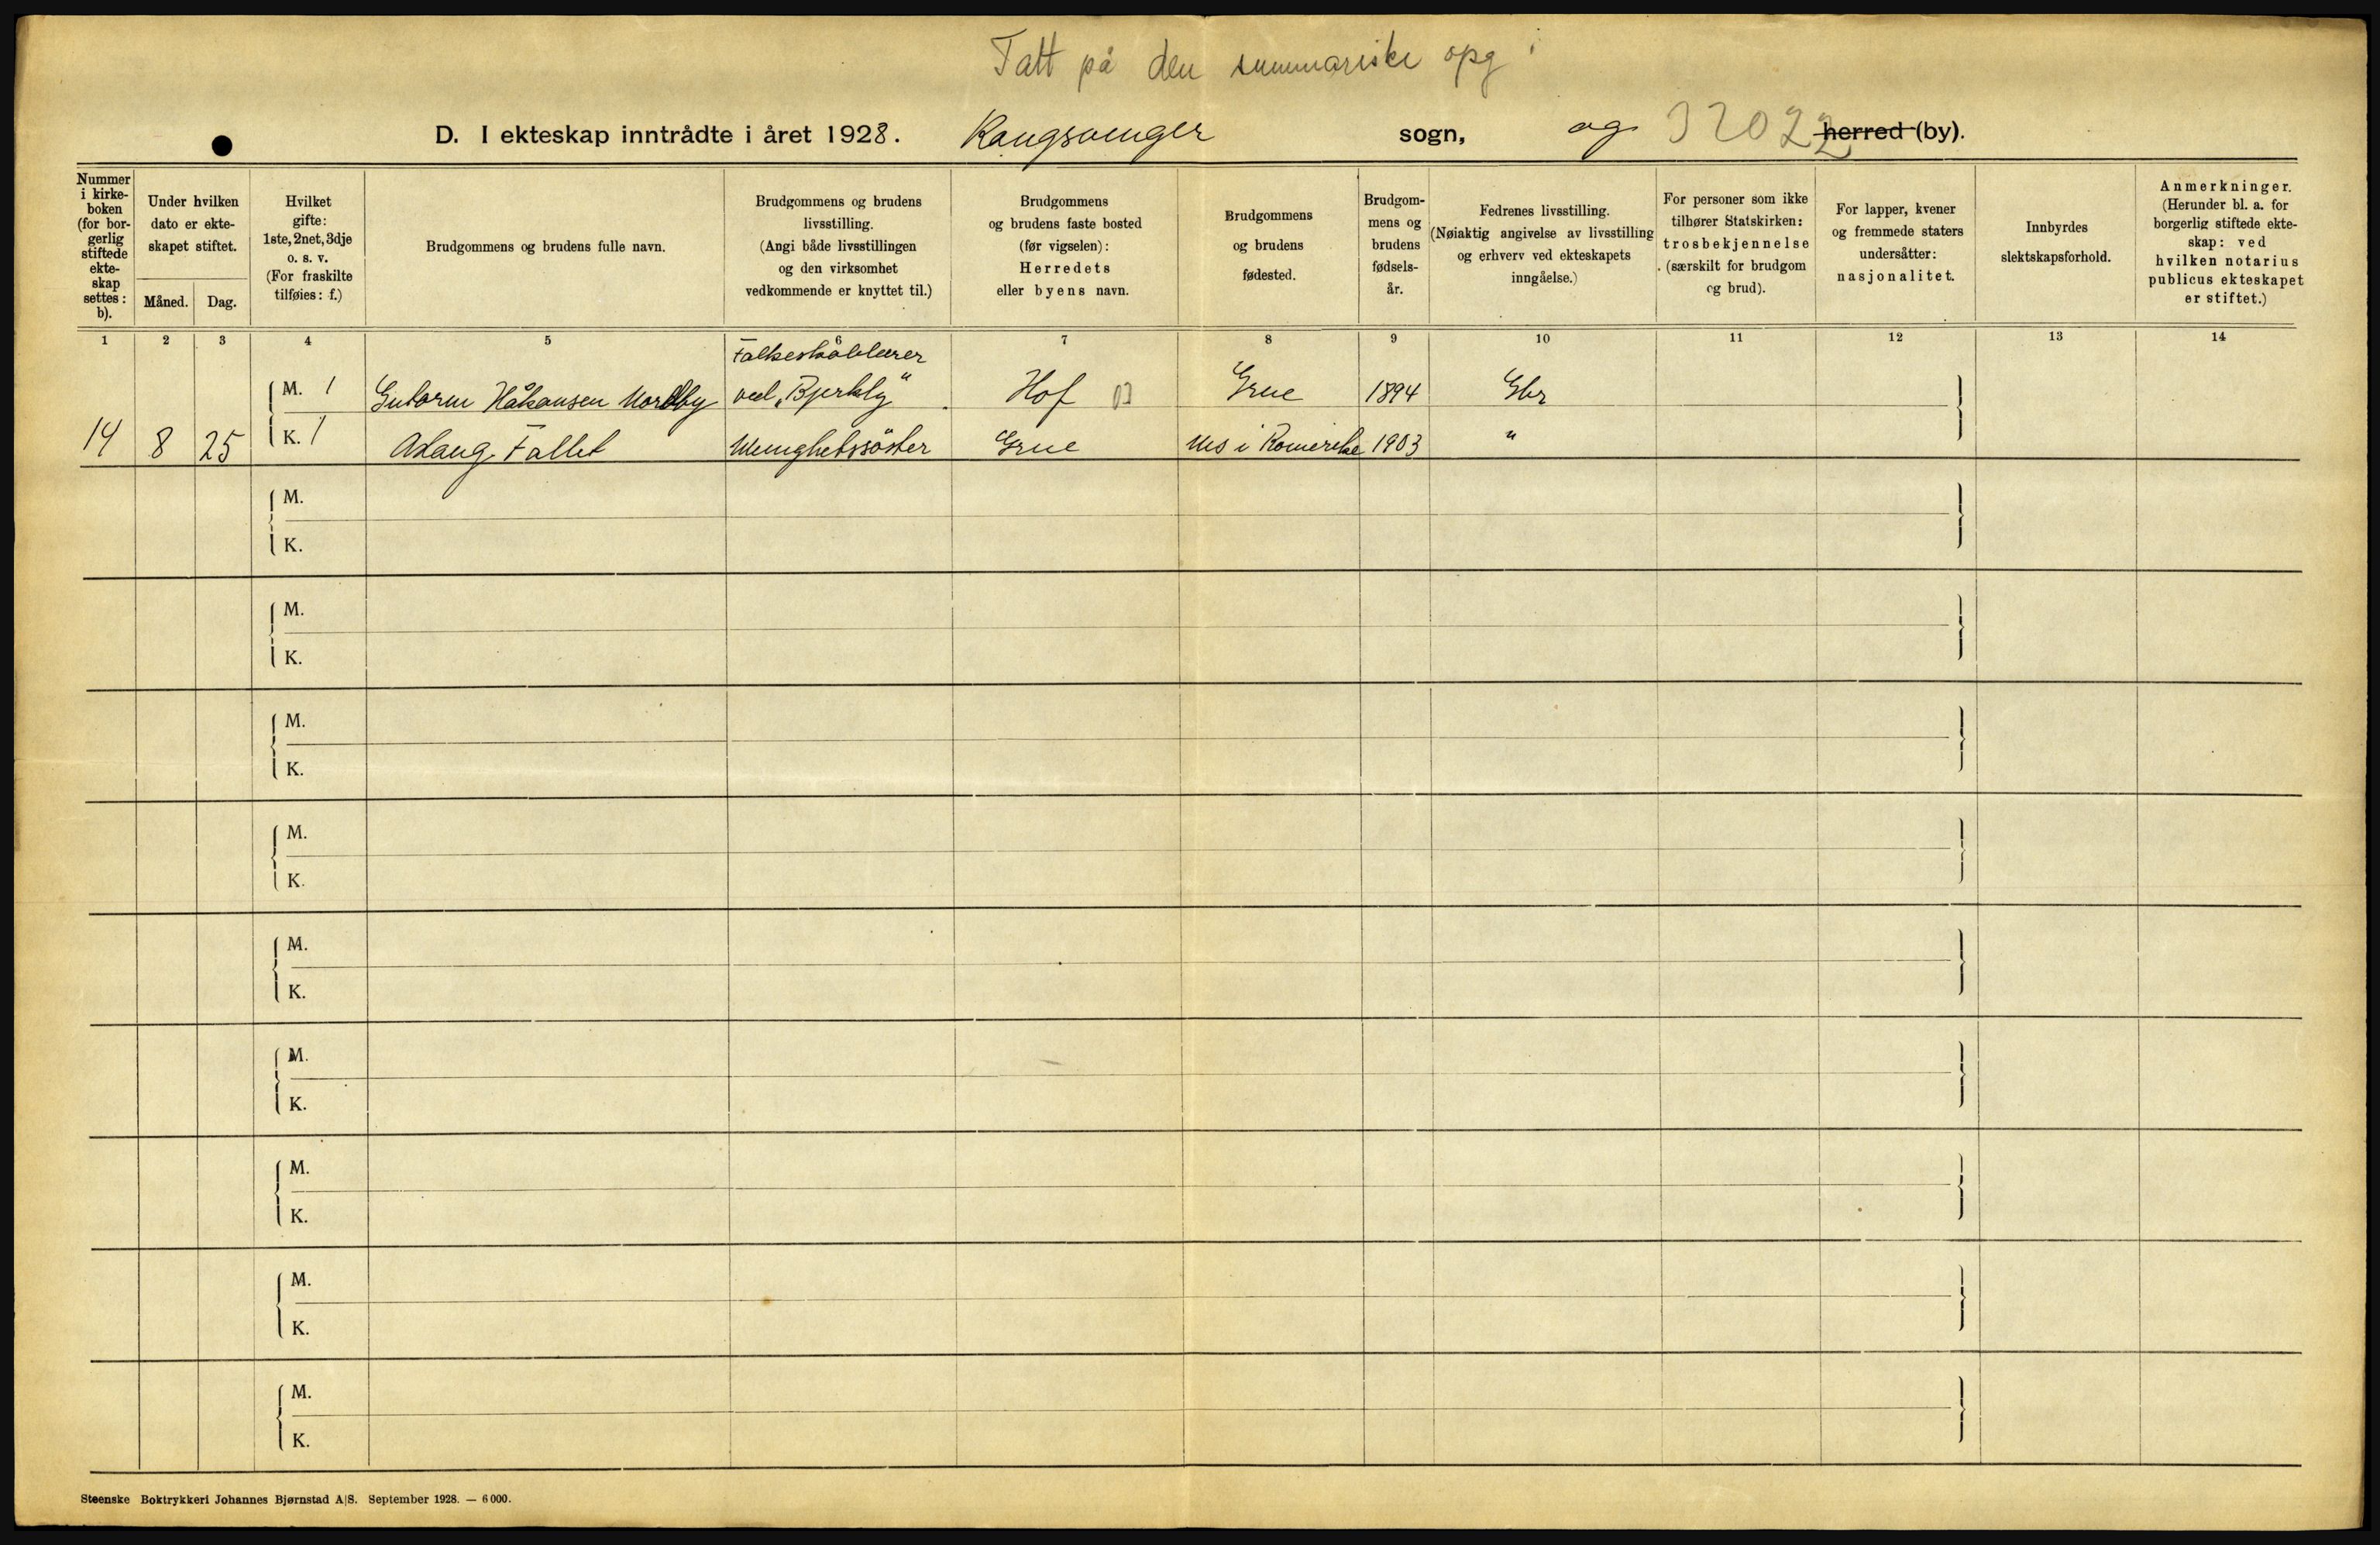 Tatt på den summariske opg
D. I ekteskap inntrådte i året 1928. Kongsvinger sogn, og 32022 herred (by).
Nummer i kirkeboken (for borgerlig stiftede ekteskap settes: b).
Under hvilken dato er ekteskapet stiftet.
Måned. Dag.
Hvilket gifte: 1ste, 2net, 3dje o. s. v. (For fraskilte tilføies: f.)
Brudgommens og brudens fulle navn.
Brudgommens og brudens livsstilling. (Angi både livsstillingen og den virksomhet vedkommende er knyttet til.)
Brudgommens og brudens faste bosted (før vigselen): Herredets eller byens navn.
Brudgommens og brudens fødested.
Brudgommens og brudens fødselsår.
Fedrenes livsstilling. (Nøiaktig angivelse av livsstilling og erhverv ved ekteskapets inngåelse.)
For personer som ikke tilhører Statskirken: trosbekjennelse (særskilt for brudgom og brud).
For lapper, kvener og fremmede staters undersåtter: nasjonalitet.
Innbyrdes slektskapsforhold.
Anmerkninger. (Herunder bl. a. for borgerlig stiftede ekteskap: ved hvilken notarius publicus ekteskapet er stiftet.)
1 2 3 4 5 6 7 8 9 10 11 12 13 14
Folkeskolelærer
M. 1 Gutorm Håkonsen Nordby ved „Bjerkly" Hof Grue 1894 Gbr
14 8 25 K. 1 Aslaug Fallet Menighetssöster Grue Nes i Romerike 1903 "
M.
K.
M.
K.
M.
K.
M.
K.
M.
K.
M.
K.
M.
K.
M.
K.
M.
K.
Steenske Boktrykkeri Johannes Bjørnstad A|S. September 1928. — 6 000.